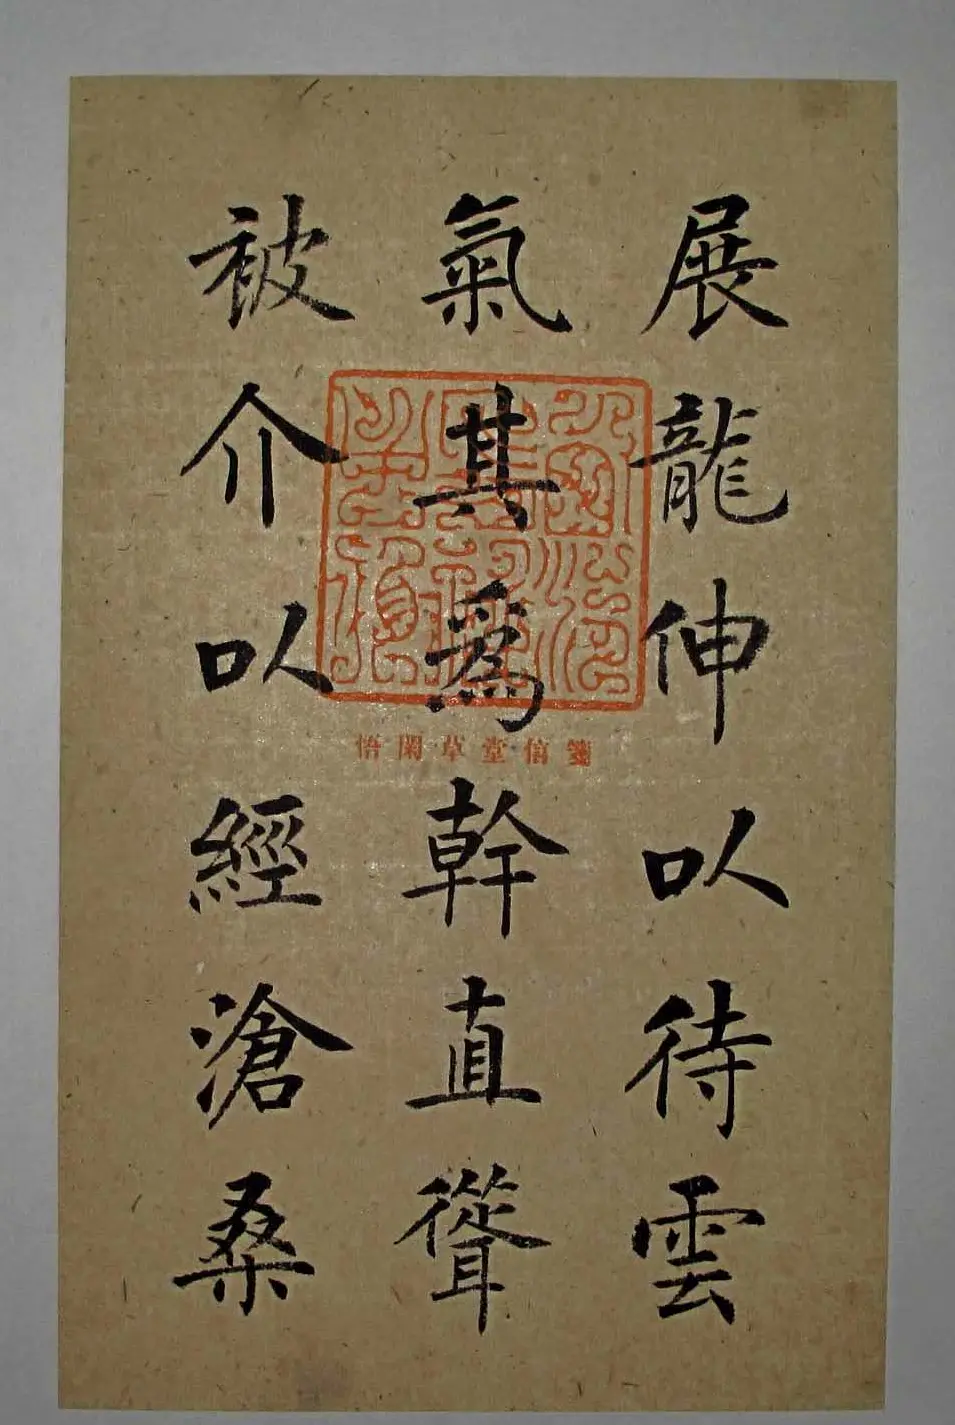 展龍伸以待雲
氣其為幹直聳
被介以經滄桑
箋信堂草閑悟